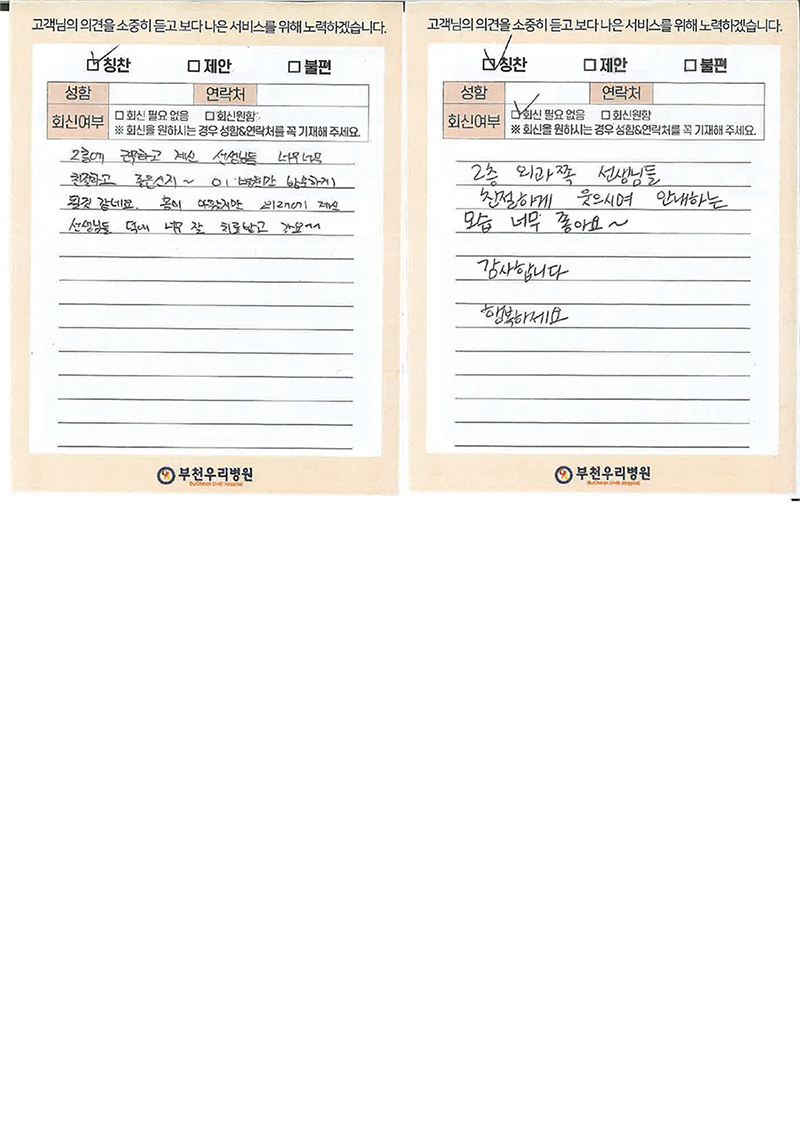 고객님의 의견을 소중히 듣고 보다 나은 서비스를 위해 노력하겠습니다.
칭찬 제안 불편
성함 연락처
회신여부 회신 필요 없음 회신원함
※ 회신을 원하시는 경우 성함&연락처를 꼭 기재해 주세요.
2층에 근무하고 계신 선생님들 너무너무
친절하고 좋은신지~ 이 병원만 방문하게
될것 같네요. 몸이 아팠지만 외래에 계신
선생님들 덕에 너무 잘 치료받고 가요^^
부천우리병원
BuCheon U-RI Hospital
고객님의 의견을 소중히 듣고 보다 나은 서비스를 위해 노력하겠습니다.
칭찬 제안 불편
성함 연락처
회신여부 회신 필요 없음 회신원함
※ 회신을 원하시는 경우 성함&연락처를 꼭 기재해 주세요.
2층 외과쪽 선생님들
친절하게 웃으시며 안내하는
모습 너무 좋아요~
감사합니다
행복하세요
부천우리병원
BuCheon U-RI Hospital